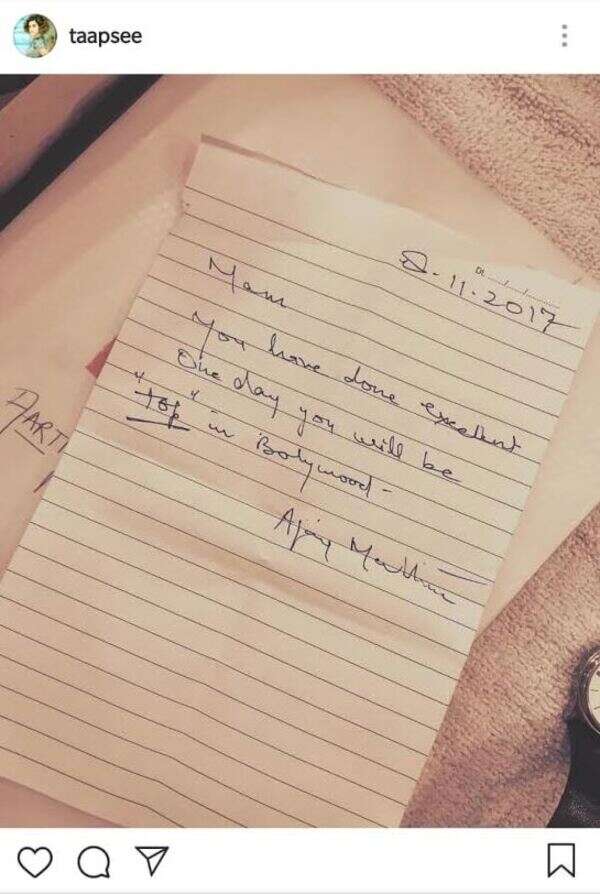 taapsee
8.11.2017
Mam
You have done excellent
One day you will be
"top" in Bolywood -
Ajay